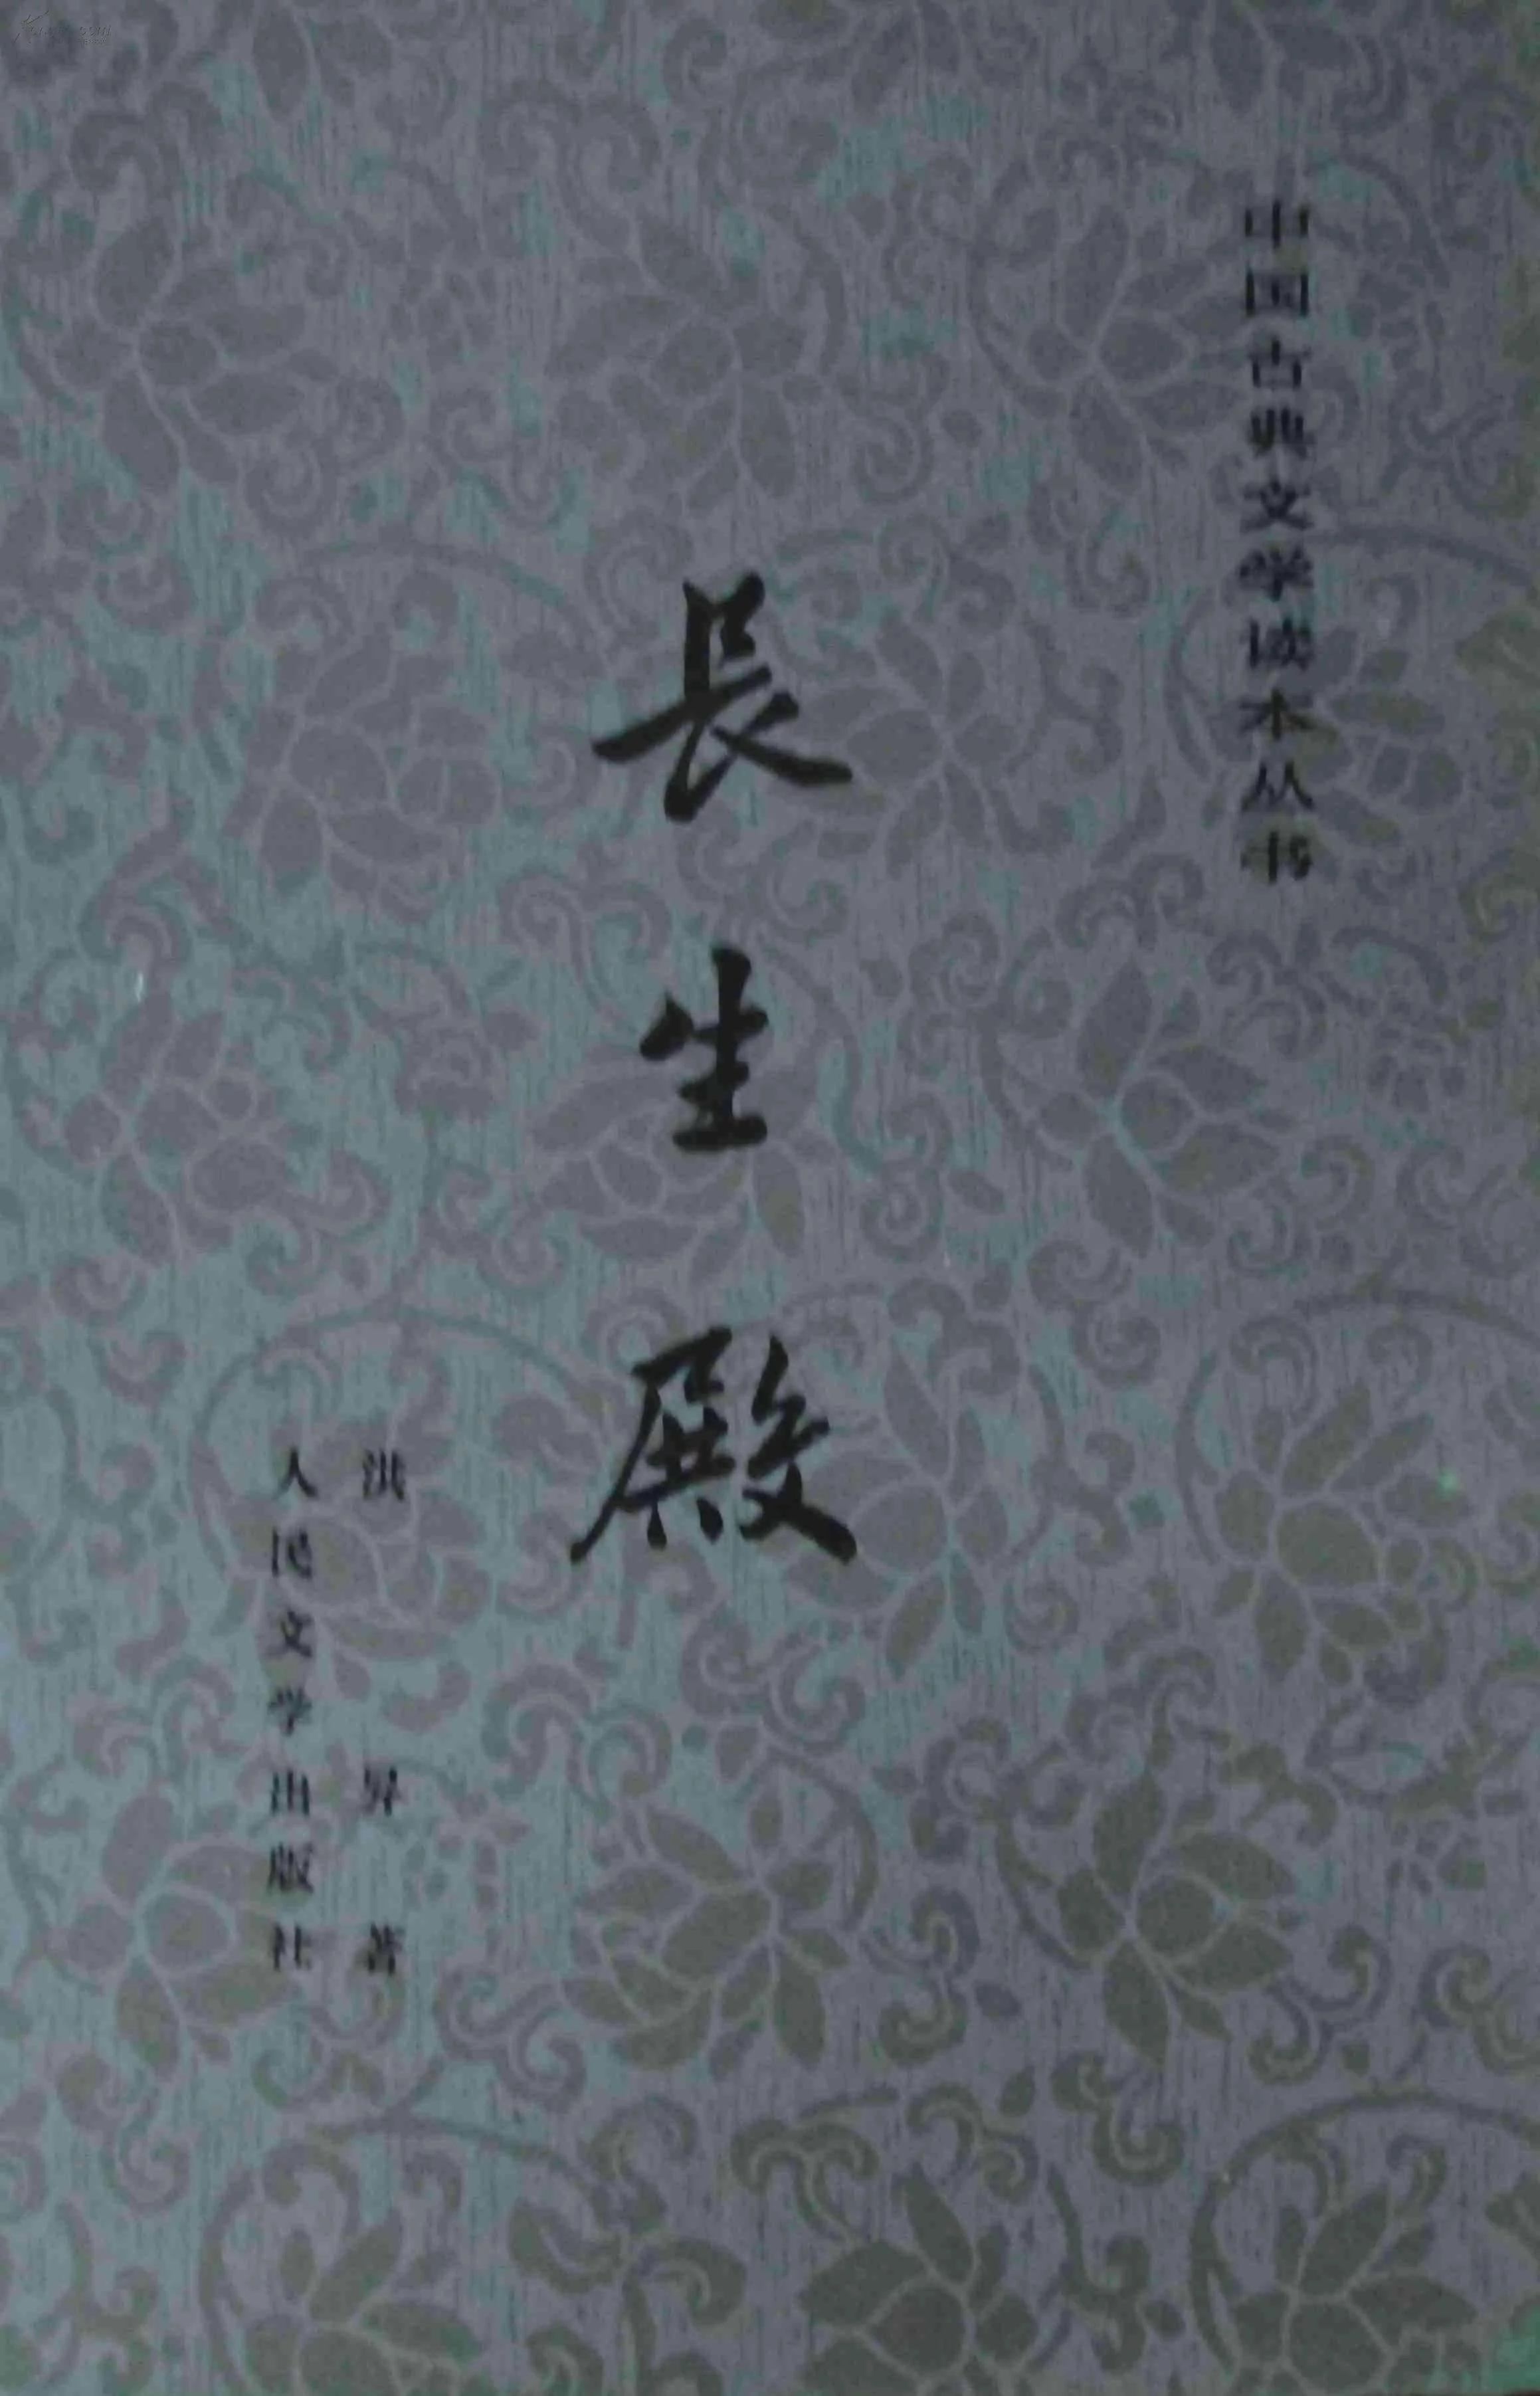 中国古典文学读本丛书
長生殿
洪昇著
人民文学出版社